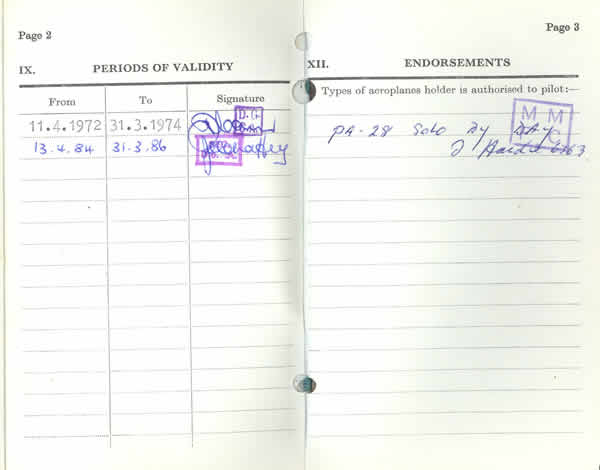 Page 2
IX. PERIODS OF VALIDITY
From To Signature
11.4.1972 31.3.1974
13.4.84 31.3.86
Page 3
XII. ENDORSEMENTS
Types of aeroplanes holder is authorised to pilot:—
PA-28 Solo By DAY
M M